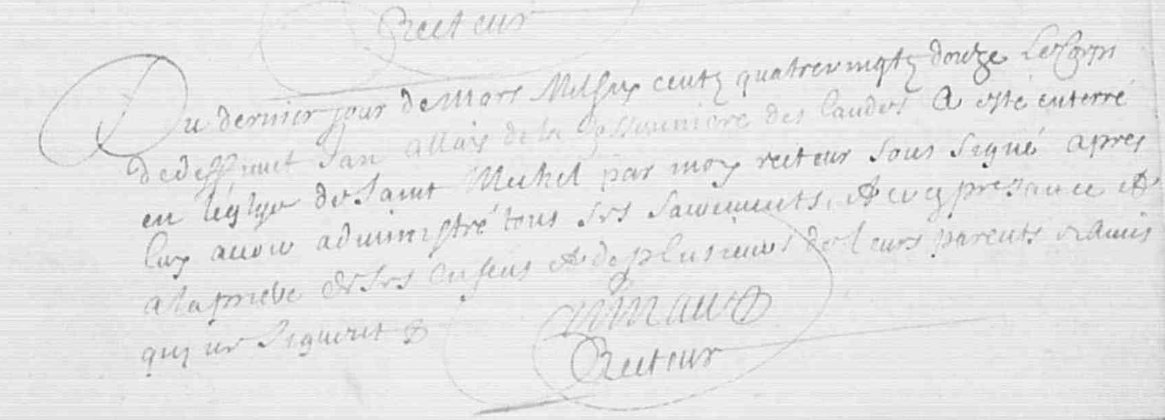 Recteur
Du dernier jour de Mars Mil six centz quatrevingtz douze Le Corps
de deffunct Jan allais de la des landes A esté enterré
en léglise de Saint Michel par moy recteur sous signé apres
luy avoir administré tous ses sacrements, A ce presance et
a la priere de ses enfens et de plusieurs de leurs parents et amis
qui ne signent &
Recteur